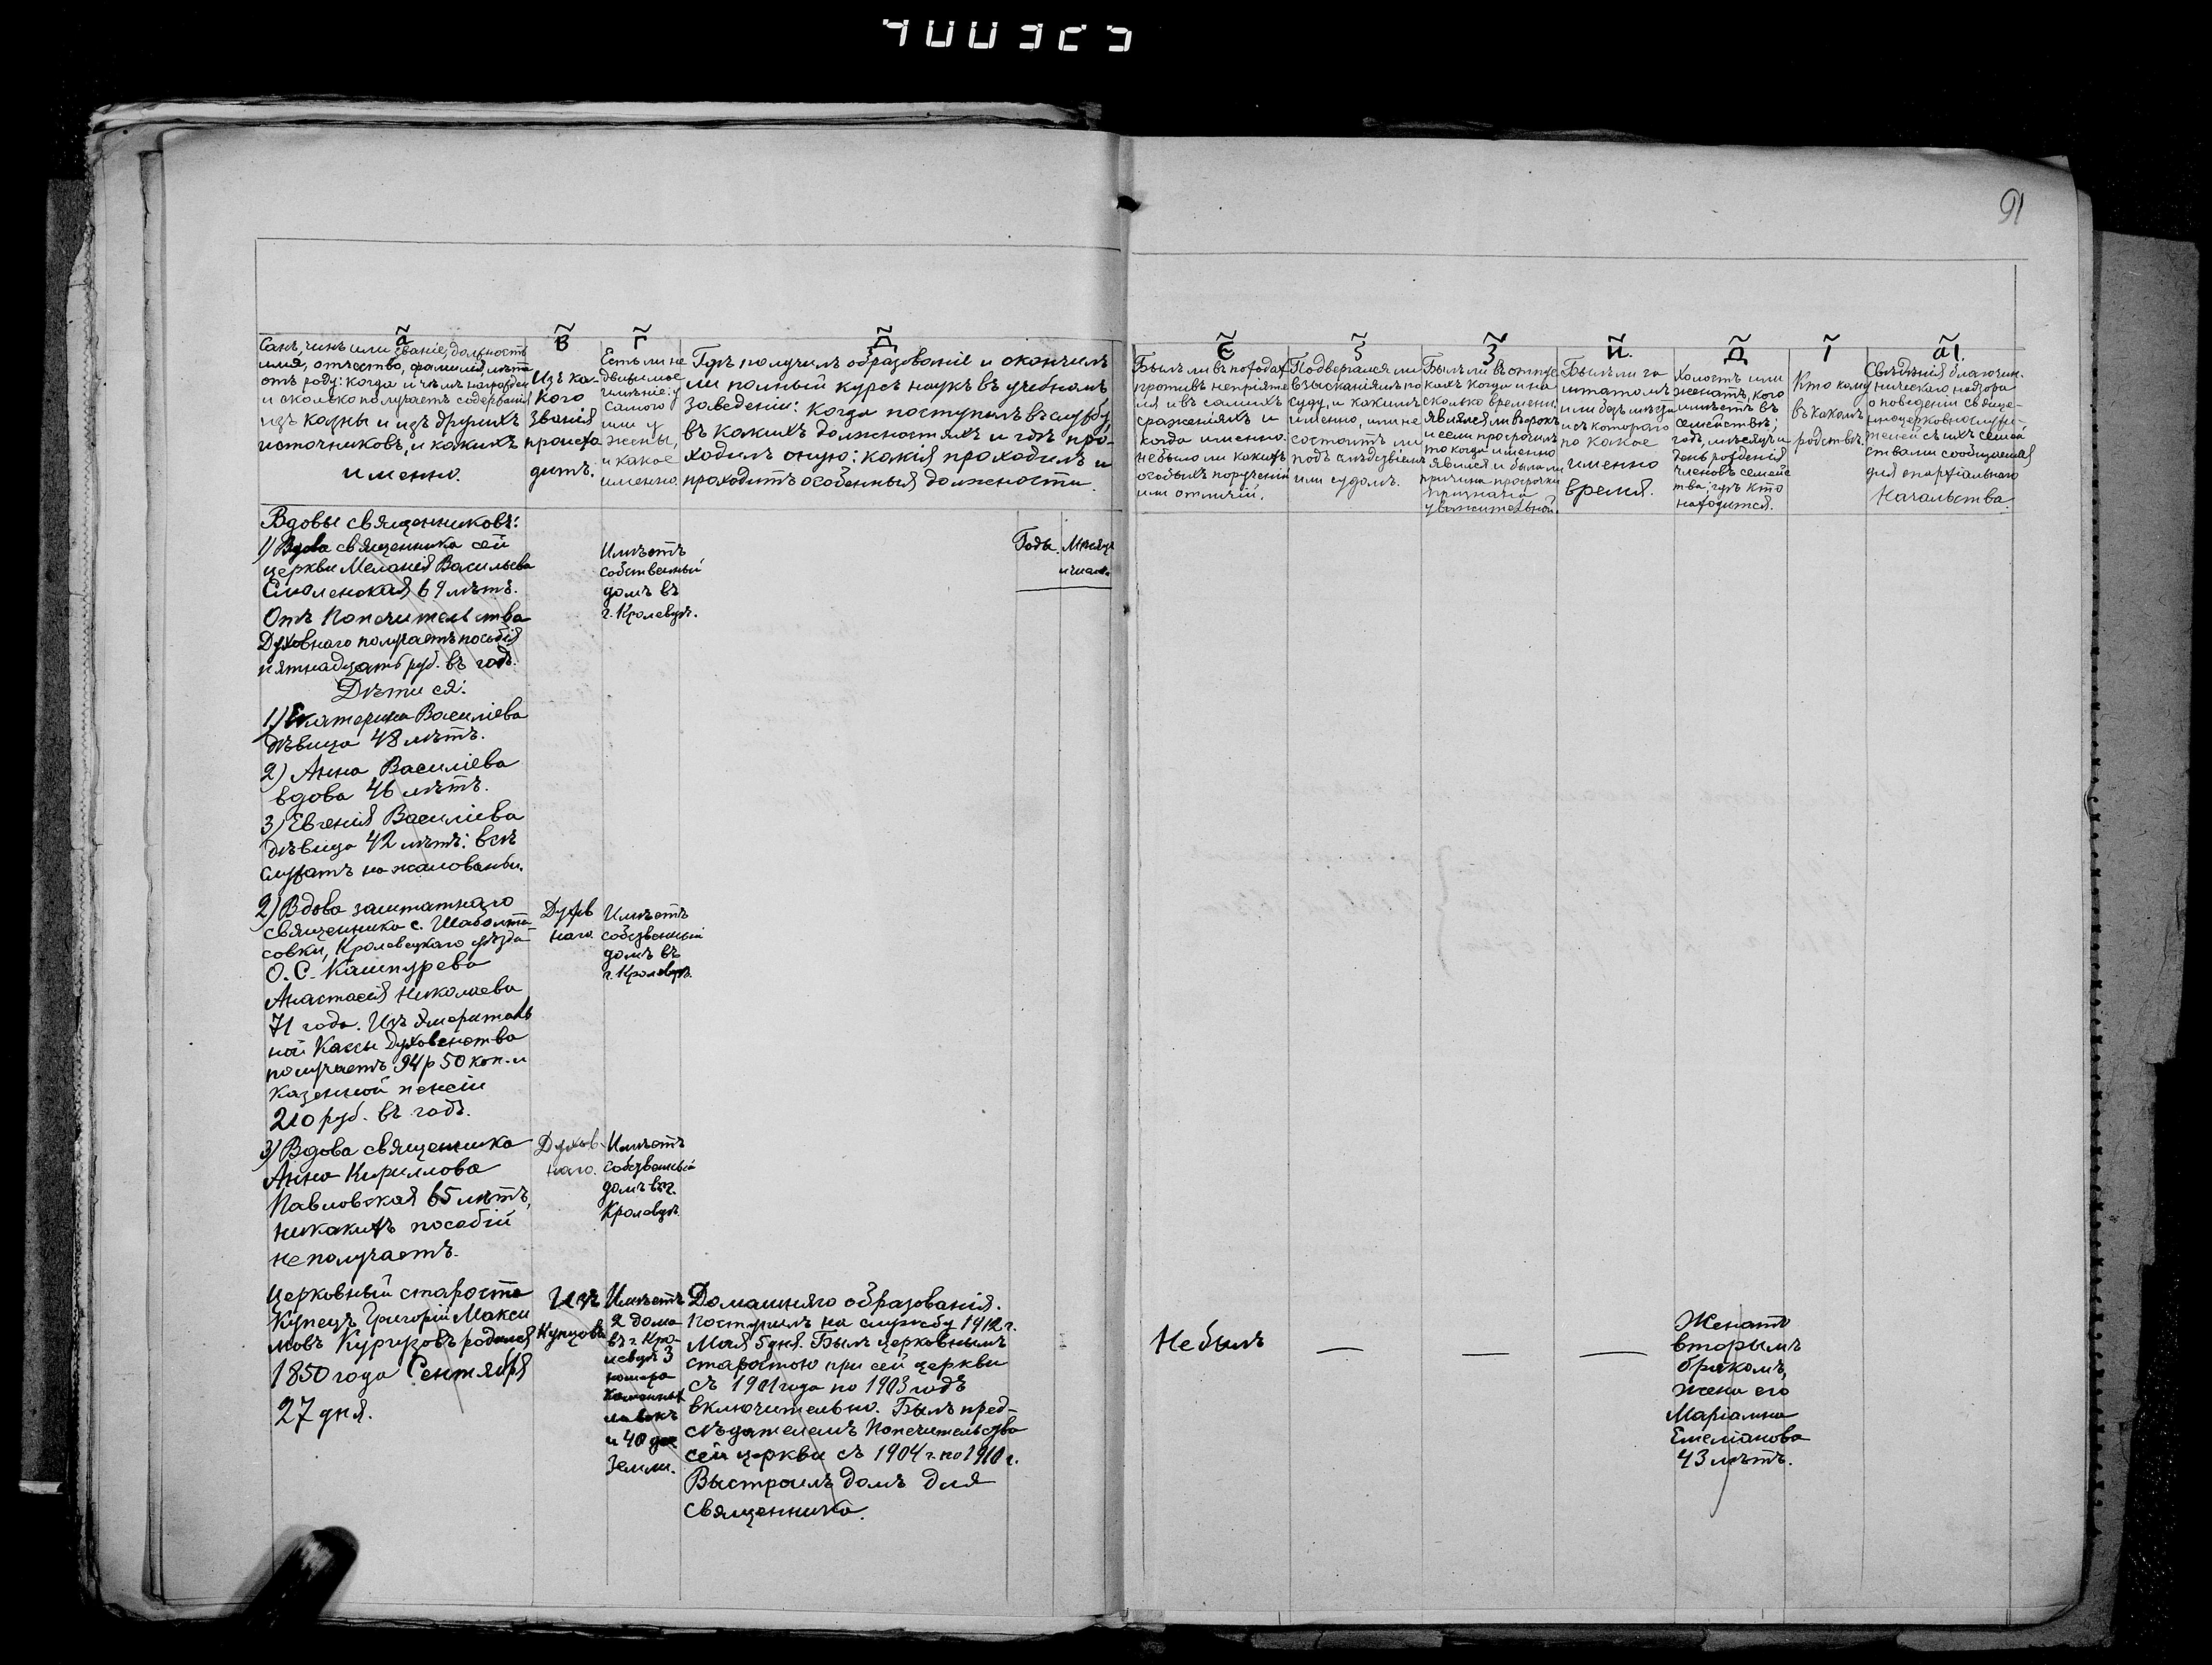 400323
91
а
Санъ, чинъ или званіе, должность
имя, отчество, фамилія, лѣта
отъ роду: когда и чѣмъ награжден
и сколько получаетъ содержанія
изъ казны и изъ другихъ
источниковъ, и какихъ
именно.
в
Изъ ка-
кого
званія
происхо
дитъ.
г
Есть ли не
движимое
имѣніе: у
самого
или у
жены,
и какое
именно.
д
Гдѣ получилъ образованіе и окончилъ
ли полный курсъ наукъ въ учебномъ
заведеніи: когда поступилъ въ службу,
въ какихъ должностяхъ и гдѣ про-
ходилъ оную: какія проходилъ и
проходитъ особенныя должности.
Годы. Мѣсяцы
и числа.
є
Былъ ли въ походахъ
противъ непріяте
ля и въ самихъ
сраженіяхъ и
когда именно.
небыло ли какихъ
особыхъ порученій
или отличій.
Подвергался ли
взысканіямъ по
суду, и какимъ
именно, или не
состоитъ ли
подъ слѣдствіемъ
или судомъ.
з
Былъ ли въ отпус
кахъ когда и на
сколько времени:
являлся ли въ срокъ
и если просрочилъ
то когда именно
явился и была ли
причина просрочки
признана
уважительной.
и.
Былъ ли за
штатомъ
или безъ мѣста
и съ котораго
по какое
именно
время.
Холостъ или
женатъ, кого
имѣетъ въ
семействѣ;
годъ, мѣсяцъ и
день рожденія
членовъ семейс
тва; гдѣ кто
находится.
і
Кто кому
въ какомъ
родствѣ.
аі.
Свѣдѣнія благочин-
ническаго надзора
о поведеніи свяще-
ноцерковнослужи-
телей съ ихъ семей
ствами сообщаемыя
для епархіальнаго
Начальства.
Вдовы священниковъ:
1) Вдова священника сей
церкви Меланія Васильева
Смоленская 69 лѣтъ.
Отъ Попечительства
Духовнаго получаетъ пособія
пятнадцать руб. въ годъ.
Имѣетъ
собственный
домъ въ
г. Кролевцѣ.
Дѣти ея:
1) Екатерина Василіева
дѣвица 48 лѣтъ.
2) Анна Василіева
вдова 46 лѣтъ.
3) Евгенія Василіева
дѣвица 42 лѣтъ: всѣ
служатъ на жалованьи.
2) Вдова заштатнаго
священника с. Шаболта-
совки, Кролевецкаго уѣзда
О. С. Кашпурева
Анастасія Николаева
71 года. Изъ Эмериталь
ной Кассы Духовенства
получаетъ 94 р 50 коп. и
казенной пенсіи
210 руб. въ годъ.
Духов
наго.
Имѣетъ
собственный
домъ въ
г. Кролевцѣ.
3) Вдова священника
Анна Кириллова
Павловская 65 лѣтъ,
никакихъ пособій
не получаетъ.
Духов-
наго.
Имѣетъ
собственный
домъ въ г.
Кролевцѣ.
Церковный староста
Купецъ Григорій Макси
мовъ Кургузовъ родился
1850 года Сентября
27 дня.
Изъ
Купцовъ
Имѣетъ
2 дома
въ г. Кро-
левцѣ 3
номера
каменныхъ
лавокъ
и 40 дес
земли.
Домашняго образованія.
Поступилъ на службу 1912 г.
Мая 5 дня. Былъ церковнымъ
старостою при сей церкви
съ 1901 года по 1903 годъ
включительно. Былъ пред-
сѣдателемъ Попечительства
сей церкви съ 1904 г. по 1910 г.
Выстроилъ домъ для
священника.
Небылъ
—
—
—
Женатъ
вторымъ
бракомъ,
жена его
Маріамна
Емеліанова
43 лѣтъ.